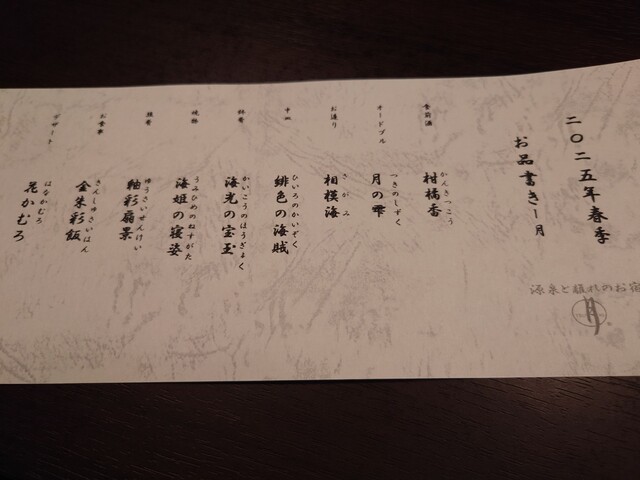 二〇二五年春季
お品書き－月
源泉と離れのお宿
月
食前酒
かんきつこう
柑橘香
オードブル
つきのしずく
月の雫
お造り
さがみ
相模海
中皿
ひいろのかいぞく
緋色の海賊
かいこうのほうぎょく
海光の宝玉
焼物
うみひめのねすがた
海姫の寝姿
ゆうさいせんけい
釉彩扇景
お食事
きんしゅさいはん
金朱彩飯
デザート
はなかむろ
花かむろ